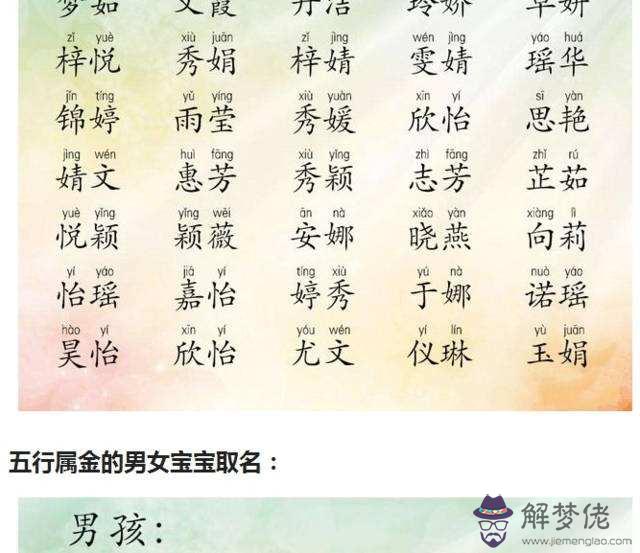 梦茹 文霞 丹洁 玲娇 卓妍
zǐ yuè xiù juān zǐ jìng wén jìng yáo huá
梓悦 秀娟 梓婧 雯婧 瑶华
jǐn tíng yǔ yíng xiù yuān xīn yí sī yàn
锦婷 雨莹 秀媛 欣怡 思艳
jìng wén huì fāng xiù yǐng zhì fāng zhǐ rú
婧文 惠芳 秀颖 志芳 芷茹
yuè yǐng yǐng wēi ān nà xiǎo yàn xiàng lì
悦颖 颖薇 安娜 晓燕 向莉
yí yáo jiā yí tíng xiù yú nà nuò yáo
怡瑶 嘉怡 婷秀 于娜 诺瑶
hào yí xīn yí yóu wén yí lín yù juān
昊怡 欣怡 尤文 仪琳 玉娟
五行属金的男女宝宝取名：
男孩：
解梦佬
www.jiemenglao.com